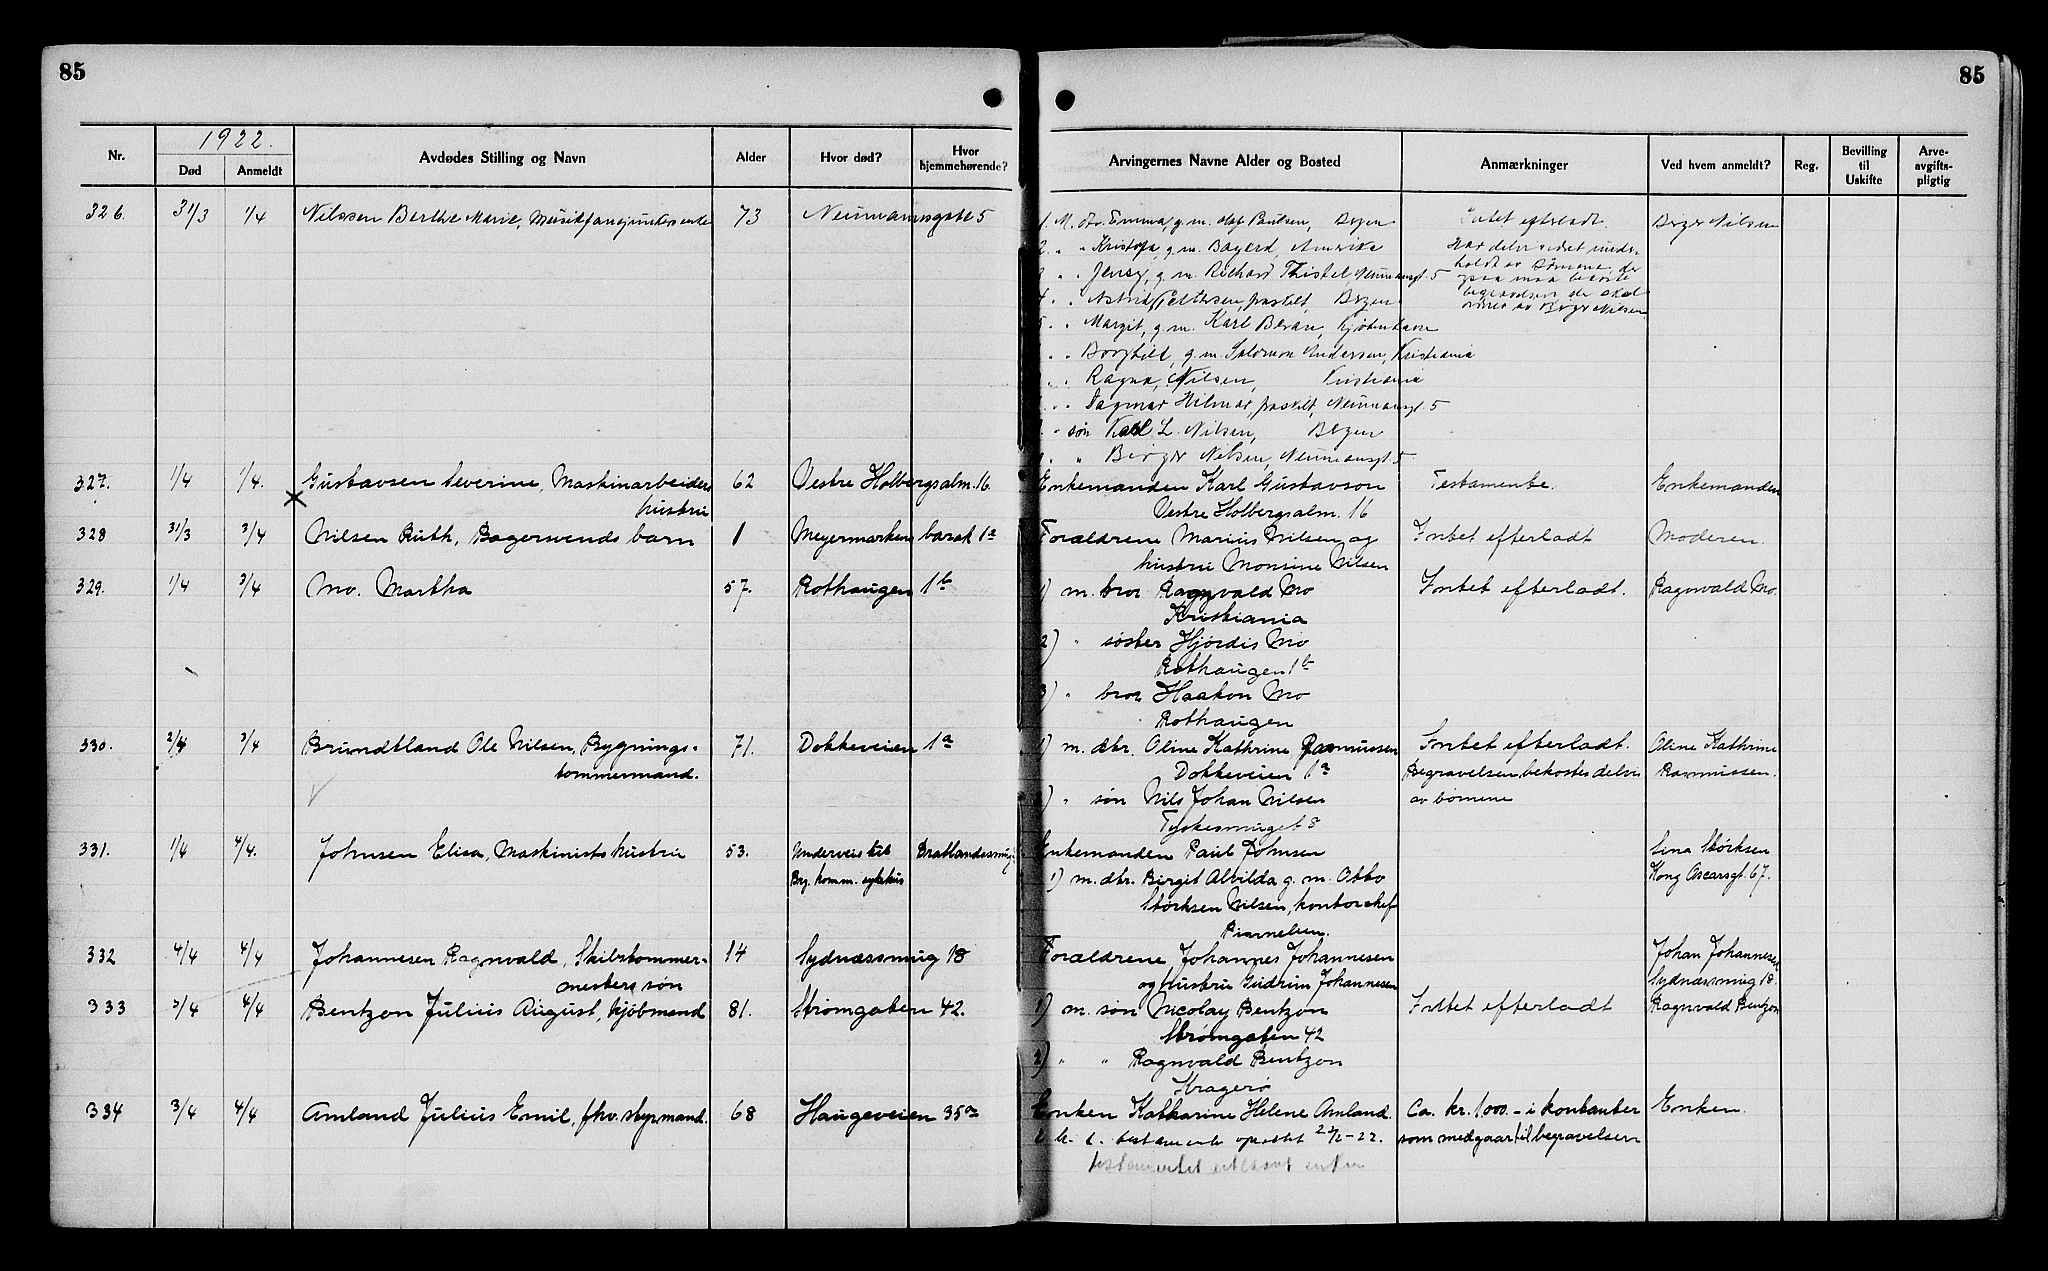 85
85
1922.
Nr. Død Anmeldt Avdødes Stilling og Navn Alder Hvor død? Hvor hjemmehørende? Arvingernes Navne Alder og Bosted Anmærkninger Ved hvem anmeldt? Reg. Bevilling til Uskifte Arve-avgifts-pligtig
326. 31/3 1/4 Nilssen Berthe Marie, 73 Neumannsgate 5
1. M. dtr. Emma, g.m. Olaf Paulsen, Bergen Intet efterladt. Birger Nilsen
2. " " g.m. Bayerd, Amerika Har delvis været under-
" " Jenny, g.m. Richard Thistel, Neumansgt. 5 holdt av sønnene, der
4. " Astrid Pettersen, fraskilt, Bergen ogsaa maa bekoste
5. " Margit, g.m. Karl Kjøbenhavn begravelsen, der
" " Borghild, g.m. Salomon Andersen, Kristiania av Birger Nilsen.
" " Ragna, Nilsen, Kristiania
" " Dagmar Hilmar, fraskilt, Neumansgt. 5
" søn Karl L. Nilsen, Bergen
" " Birger Nilsen, Neumansgt. 5
327. 1/4 1/4. Gustavsen Severine, Maskinarbeiders 62 Vestre Holbergsalm. 16. Enkemanden Karl Gustavson Testamente. Enkemanden
hustru Vestre Holbergsalm. 16
328 31/3 3/4 Nilsen Ruth, Bagersvends barn 1 Meyermarkens barak 1a Forældrene Marius Nilsen og Intet efterladt Moderen.
hustru Monsine Nilsen
329. 1/4 3/4 Mo. Martha 57. Rothaugen 1b 1) m. bror Ragnvald Mo Intet efterladt. Ragnvald Mo.
Kristiania
2) " søster Hjørdis Mo
Rothaugen 1b
3) " bror Haakon Mo
Rothaugen
330. 2/4 3/4 Brundtland Ole Nilsen, Bygnings- 71. Dokkeveien 1a 1) m. dtr. Oline Kathrine Rasmussen Intet efterladt. Oline Kathrine
tømmermand. Dokkeveien 1a Begravelsen bekostes delvis Rasmussen.
2) " søn Nils Johan Nilsen av børnene
Tyskesmuget 8
331. 1/4 4/4. Johnsen Elisa, Maskinists hustru 53. Underveis til Bratlandssmug Enkemanden Paul Johnsen Lina Størksen
Brg. komm. sykehus 1) m. dtr. Birgit Alvilda g. m. Otto Kong Oscarsgt. 67.
Størksen Nilsen, kontorchef
332 4/4 4/4 Johannesen Ragnvald, Skibstømmer- 14 Sydnæssmug 18 Forældrene Johannes Johannesen Johan Johannesen
mesters søn og hustru Gudrun Johannesen Sydnæssmug 18.
333 3/4 4/4 Bentzon Julius August, kjøbmand 81. Strømgaten 42. 1) m. søn Nicolay Bentzon Intet efterladt Ragnvald Bentzon
Strømgaten 42
2) " " Ragnvald Bentzon
Kragerø
334 3/4 4/4 Amland Julius Emil, fhv. styrmand. 68 Haugeveien 35a Enken Katharine Helene Amland. Ca. kr. 1.000.- i kontanter Enken.
testamente oprettet -22. som medgaar til begravelsen
testamentet utlevert enken